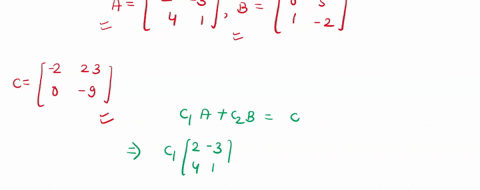 A = [ 2 -3 ] , B = [ 0 5 ]
4 1 1 -2
C = [ -2 23 ]
0 -9
C₁ A + C₂ B = C
⇒ C₁ [ 2 -3 ]
4 1